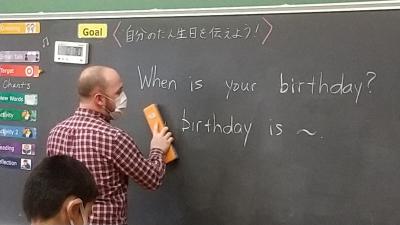 Goal
〈自分のたん生日を伝えよう!〉
When is your birthday?
birthday is ~.
Greeting
Small talk
Target
Chants
New Words
Activity
Activity 2
Reading
Reflection